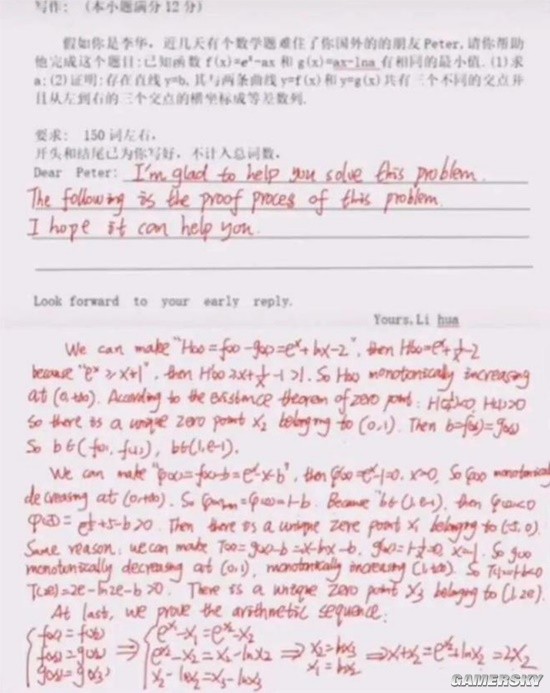 写作：（本小题满分12分）
假如你是李华，近几天有个数学题难住了你国外的的朋友Peter,请你帮助
他完成这个题目:已知函数 f(x)=eˣ-ax 和 g(x)=ax-lna 有相同的最小值. (1)求
a; (2)证明:存在直线y=b,其与两条曲线 y=f(x)和y=g(x)共有三个不同的交点并
且从左到右的三个交点的横坐标成等差数列.
要求： 150 词左右,
开头和结尾已为你写好, 不计入总词数,
Dear Peter: I'm glad to help you solve this problem.
The following is the proof proces of this problem.
I hope it can help you.
Look forward to your early reply.
Yours,Li hua
We can make "H(x)=f(x)-g(x)=eˣ+lnx-2", then H'(x)=eˣ+1/x-2
because "eˣ≥x+1", then H'(x)≥x+1/x-1≥1. So H(x) monotonically increasing
at (0,+∞). According to the existance theorem of zero point: <0, H(1)>0
so there is a unique zero point x₂ belonging to (0,1). Then b=f(x₂)=g(x₂)
So b∈(f(0),f(1)), b∈(1,e-1).
We can make "φ(x)=f(x)-b=eˣ-x-b", then φ'(x)=eˣ-1=0, x=0, So φ(x) monotonically
decreasing at (0,+∞). So =φ(0)=1-b. Because "b∈(1,e-1), then φ(0)<0
+5-b>0. Then there is a unique zero point x₁ belonging to (-5,0).
Same reason, we can make T(x)=g(x)-b=x-lnx-b, g'(x)=1-1/x=0, x=1. So g(x)
monotonically decreasing at (0,1), monotonically increasing (1,+∞). So T(1)=1-b<0
T(2e)=2e-ln2e-b>0. There is a unique zero point x₃ belonging to (1,2e).
At last, we prove the arithmetic sequence:
f(x₁)=f(x₂) ⇒ eˣ¹-x₁=eˣ²-x₂
f(x₂)=g(x₂) eˣ²-x₂=x₂-lnx₂ ⇒ x₂=lnx₃ ⇒ x₁+x₃=eˣ²+lnx₂=2x₂
g(x₂)=g(x₃) x₂-lnx₂=x₃-lnx₃ x₁=lnx₂
GAMERSKY